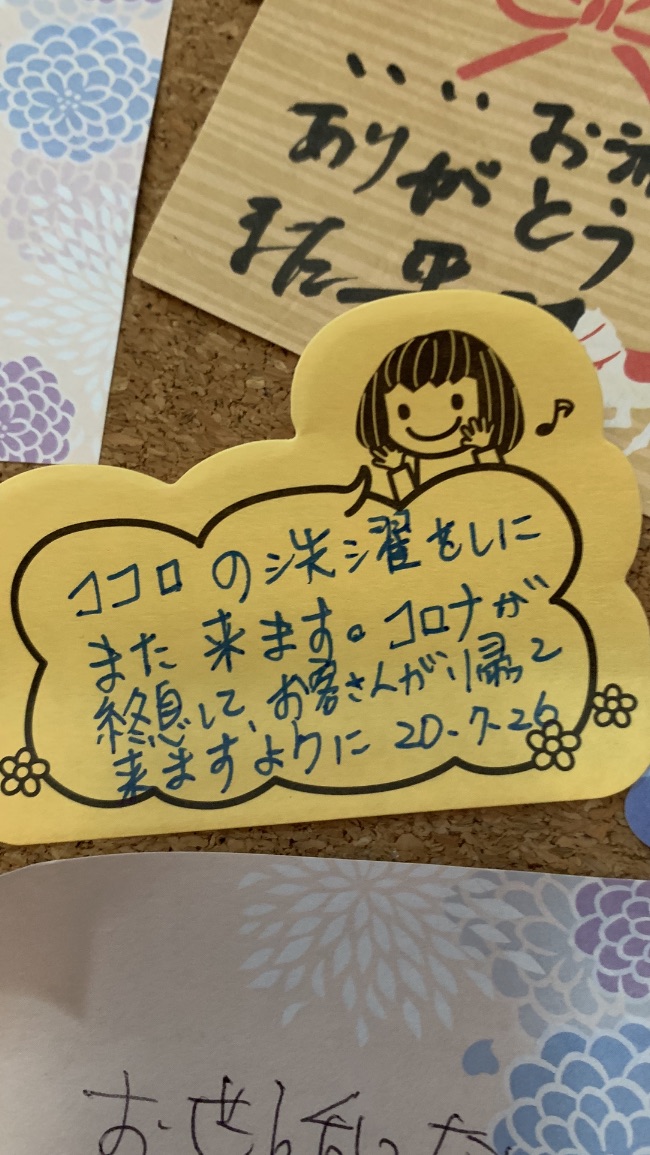 いい お
ありがとう
また
ココロの洗濯をしに
また来ます。コロナが
終息して、お客さんが帰って
来ますように 20.7.26
お